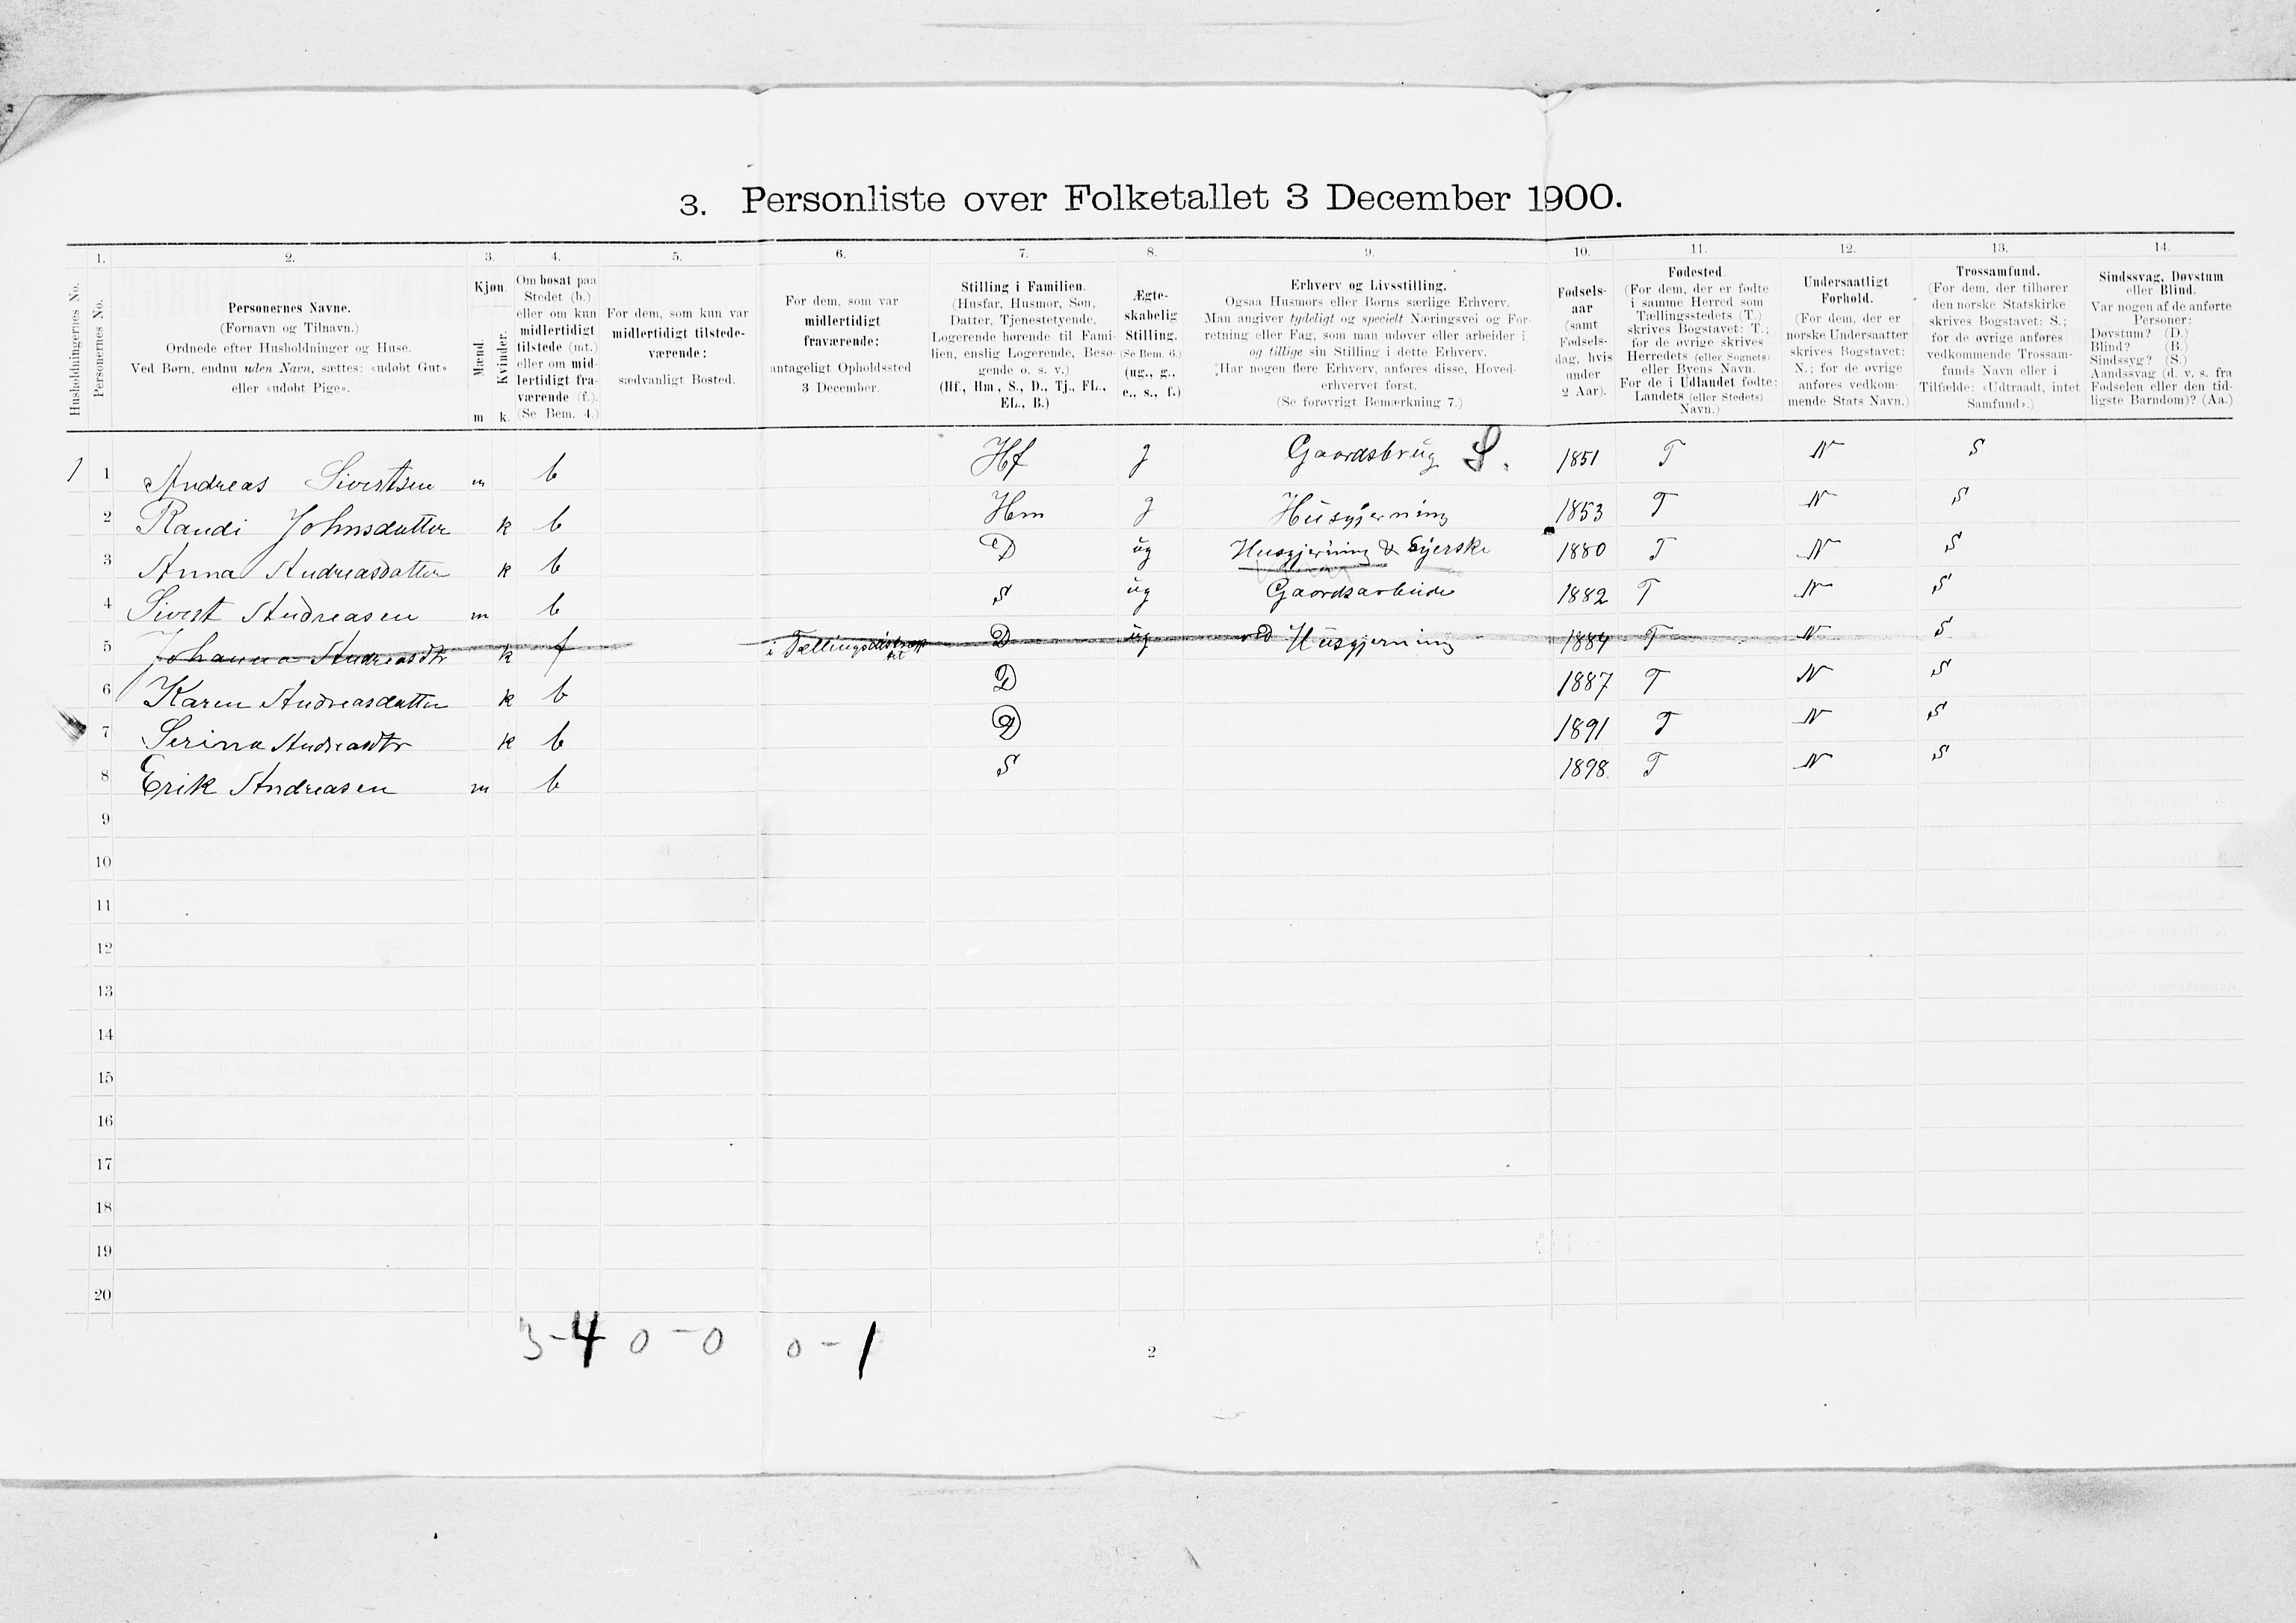 3. Personliste over Folketallet 3 December 1900.
1. 2. 3. 4. 5. 6. 7. 8. 9. 10. 11. 12. 13. 14.
Husholdningernes No.
Personernes No.
Personernes Navne.
(Fornavn og Tilnavn.)
Ordnede efter Husholdninger og Huse.
Ved Børn, endnu uden Navn, sættes: «udøbt Gut»
eller «udøbt Pige».
Kjøn.
Mænd.
Kvinder.
m k.
Om bosat paa
Stedet (b.)
eller om kun
midlertidigt
tilstede (mt.)
eller om mid-
lertidigt fra-
værende (f.).
(Se Bem. 4.)
For dem, som kun var
midlertidigt tilstede-
værende:
sædvanligt Bosted.
For dem, som var
midlertidigt
fraværende:
antageligt Opholdssted
3 December.
Stilling i Familien.
(Husfar, Husmor, Søn,
Datter, Tjenestetyende,
Logerende hørende til Fami-
lien, enslig Logerende, Besø-
gende o. s. v.)
(Hf., Hm., S., D., Tj., FL.,
EL., B.)
Ægte-
skabelig
Stilling.
(Se Bem. 6.)
(ug., g.,
e., s., f.)
Erhverv og Livsstilling.
Ogsaa Husmors eller Børns særlige Erhverv.
Man angiver tydeligt og specielt Næringsvei og For-
retning eller Fag, som man udøver eller arbeider i,
og tillige sin Stilling i dette Erhverv.
(Har nogen flere Erhverv, anføres disse, Hoved-
erhvervet først.
(Se forøvrigt Bemærkning 7.)
Fødsels-
aar
(samt
Fødsels-
dag, hvis
under
2 Aar).
Fødested.
(For dem, der er fødte
i samme Herred som
Tællingsstedets (T.)
skrives Bogstavet: T.;
for de øvrige skrives
Herredets (eller Sognets)
eller Byens Navn.
For de i Udlandet fødte:
Landets (eller Stedets)
Navn.)
Undersaatligt
Forhold.
(For dem, der er
norske Undersaatter
skrives Bogstavet:
N.; for de øvrige
anføres vedkom-
mende Stats Navn.)
Trossamfund.
(For dem, der tilhører
den norske Statskirke
skrives Bogstavet: S.;
for de øvrige anføres
vedkommende Trossam-
funds Navn eller i
Tilfælde: «Udtraadt, intet
Samfund».)
Sindssvag, Døvstum
eller Blind.
Var nogen af de anførte
Personer:
Døvstum? (D.)
Blind? (B.)
Sindssyg? (S.)
Aandssvag (d. v. s. fra
Fødselen eller den tid-
ligste Barndom)? (Aa.)
1 1 Andreas Sivertsen m b Hf g Gaardsbrug S. 1851 T N S
2 Randi Johnsdatter k b Hm g Husgjerning 1853 T N S
3 Anna Andreasdatter k b D ug Husgjerning & Syerske 1880 T N S
4 Sivert Andreasen m b S ug Gaardsarbeide 1882 T N S
5 Johanna Andreasdtr k f i Tællingsdistriktet D ug ved Husgjerning 1884 T N S
6 Karen Andreasdatter k b D 1887 T N S
7 Serina Andreasdtr k b D 1891 T N S
8 Erik Andreasen m b S 1898. T N S
9
10
11
12
13
14
15
16
17
18
19
20
3-4 0-0 0-1
2